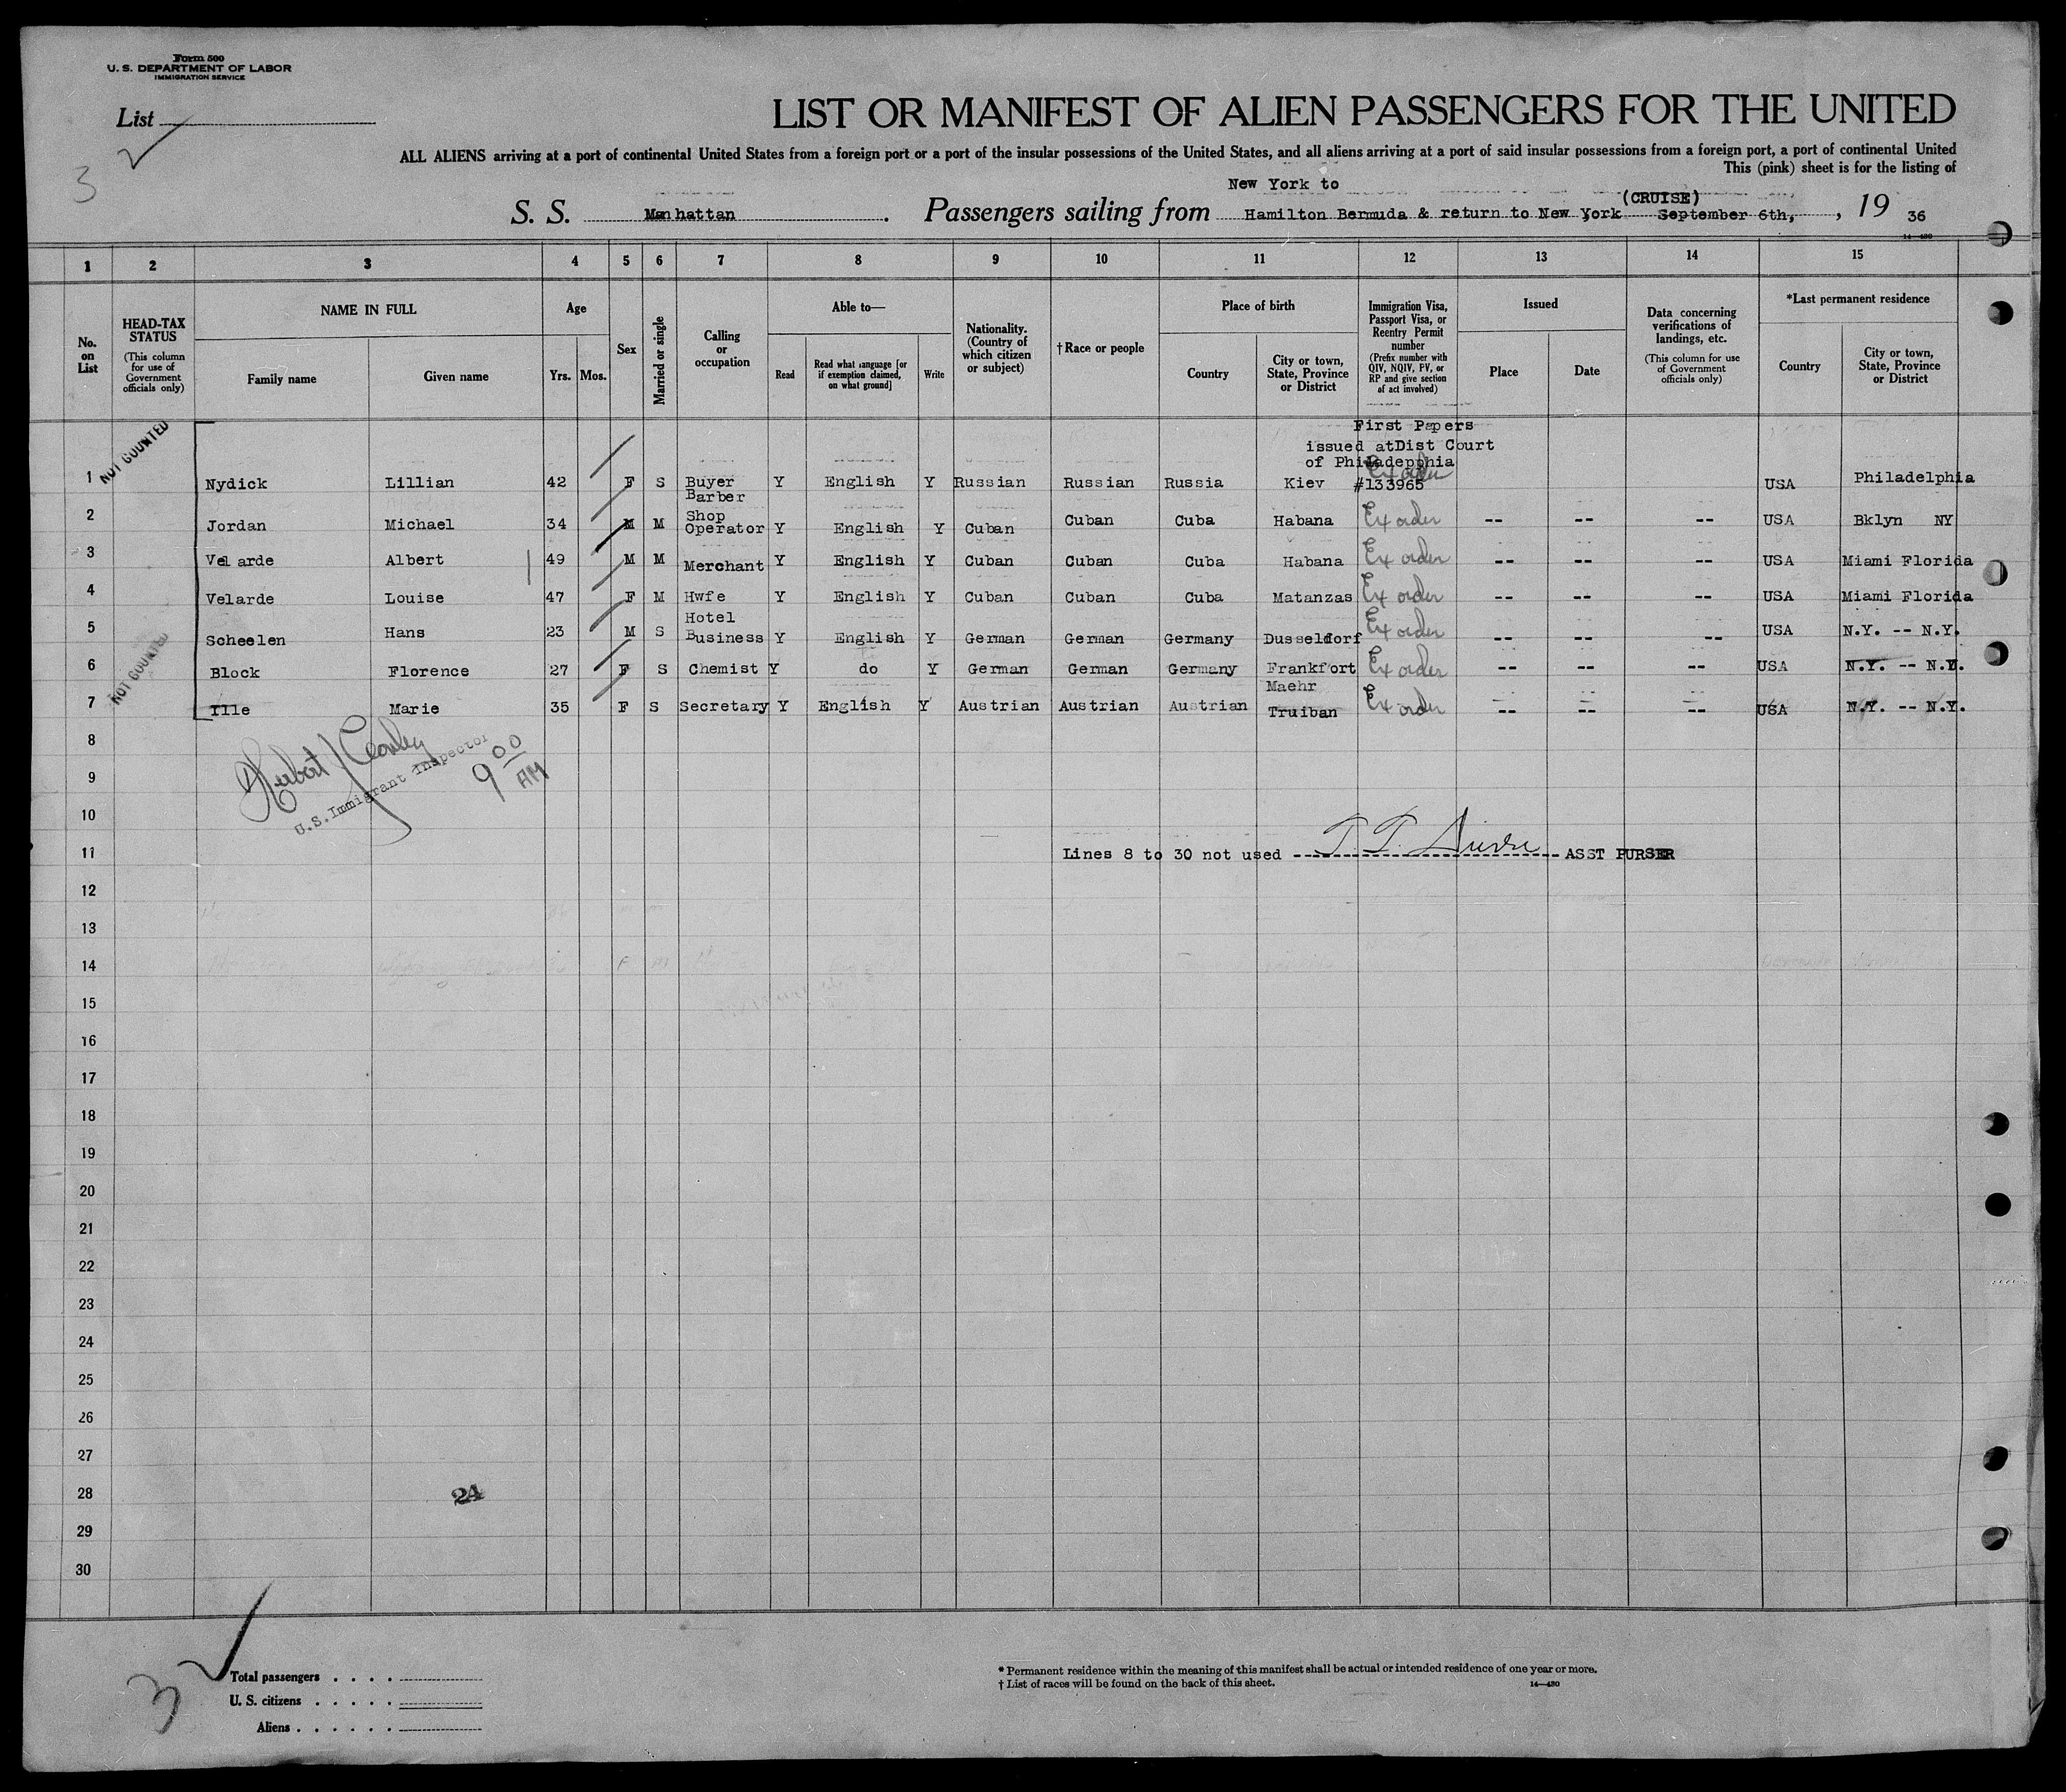 Form 500
U. S. DEPARTMENT OF LABOR
IMMIGRATION SERVICE
List
3
LIST OR MANIFEST OF ALIEN PASSENGERS FOR THE UNITED
ALL ALIENS arriving at a port of continental United States from a foreign port or a port of the insular possessions of the United States, and all aliens arriving at a port of said insular possessions from a foreign port, a port of continental United
This (pink) sheet is for the listing of
New York to
S. S. Manhattan. Passengers sailing from Hamilton Bermuda & return to New York (CRUISE) September 6th, , 19 36
14—430
1 2 3 4 5 6 7 8 9 10 11 12 13 14 15
No. on List
HEAD-TAX STATUS (This column for use of Government officials only)
NAME IN FULL
Family name Given name
Age
Yrs. Mos.
Sex
Married or single
Calling or occupation
Able to—
Read
Read what language [or if exemption claimed, on what ground]
Write
Nationality. (Country of which citizen or subject)
†Race or people
Place of birth
Country
City or town, State, Province or District
Immigration Visa, Passport Visa, or Reentry Permit number (Prefix number with QIV, NQIV, PV, or RP and give section of act involved)
Issued
Place Date
Data concerning verifications of landings, etc. (This column for use of Government officials only)
*Last permanent residence
Country
City or town, State, Province or District
NOT COUNTED
First Papers
issued atDist Court
of Philadepphia
Ex order
1 Nydick Lillian 42 F S Buyer Y English Y Russian Russian Russia Kiev #133965 USA Philadelphia
2 Jordan Michael 34 M M Barber Shop Operator Y English Y Cuban Cuban Cuba Habana Ex order -- -- -- USA Bklyn NY
3 Velarde Albert 49 M M Merchant Y English Y Cuban Cuban Cuba Habana Ex order -- -- -- USA Miami Florida
4 Velarde Louise 47 F M Hwfe Y English Y Cuban Cuban Cuba Matanzas Ex order -- -- -- USA Miami Florida
5 Scheelen Hans 23 M S Hotel Business Y English Y German German Germany Dusseldorf Ex order -- -- -- USA N.Y. -- N.Y.
NOT COUNTED
6 Block Florence 27 F S Chemist Y do Y German German Germany Frankfort Ex order -- -- -- USA N.Y. -- N.Y.
7 Ille Marie 35 F S Secretary Y English Y Austrian Austrian Austrian Maehr Truiban Ex order -- -- -- USA N.Y. -- N.Y.
8
U.S. Immigrant Inspector
9 00 AM
9
10
11 Lines 8 to 30 not used ASST PURSER
12
13
14
15
16
17
18
19
20
21
22
23
24
25
26
27
28 24
29
30
3
Total passengers . . . .
U. S. citizens . . . . .
Aliens . . . . . .
* Permanent residence within the meaning of this manifest shall be actual or intended residence of one year or more.
† List of races will be found on the back of this sheet.
14—430